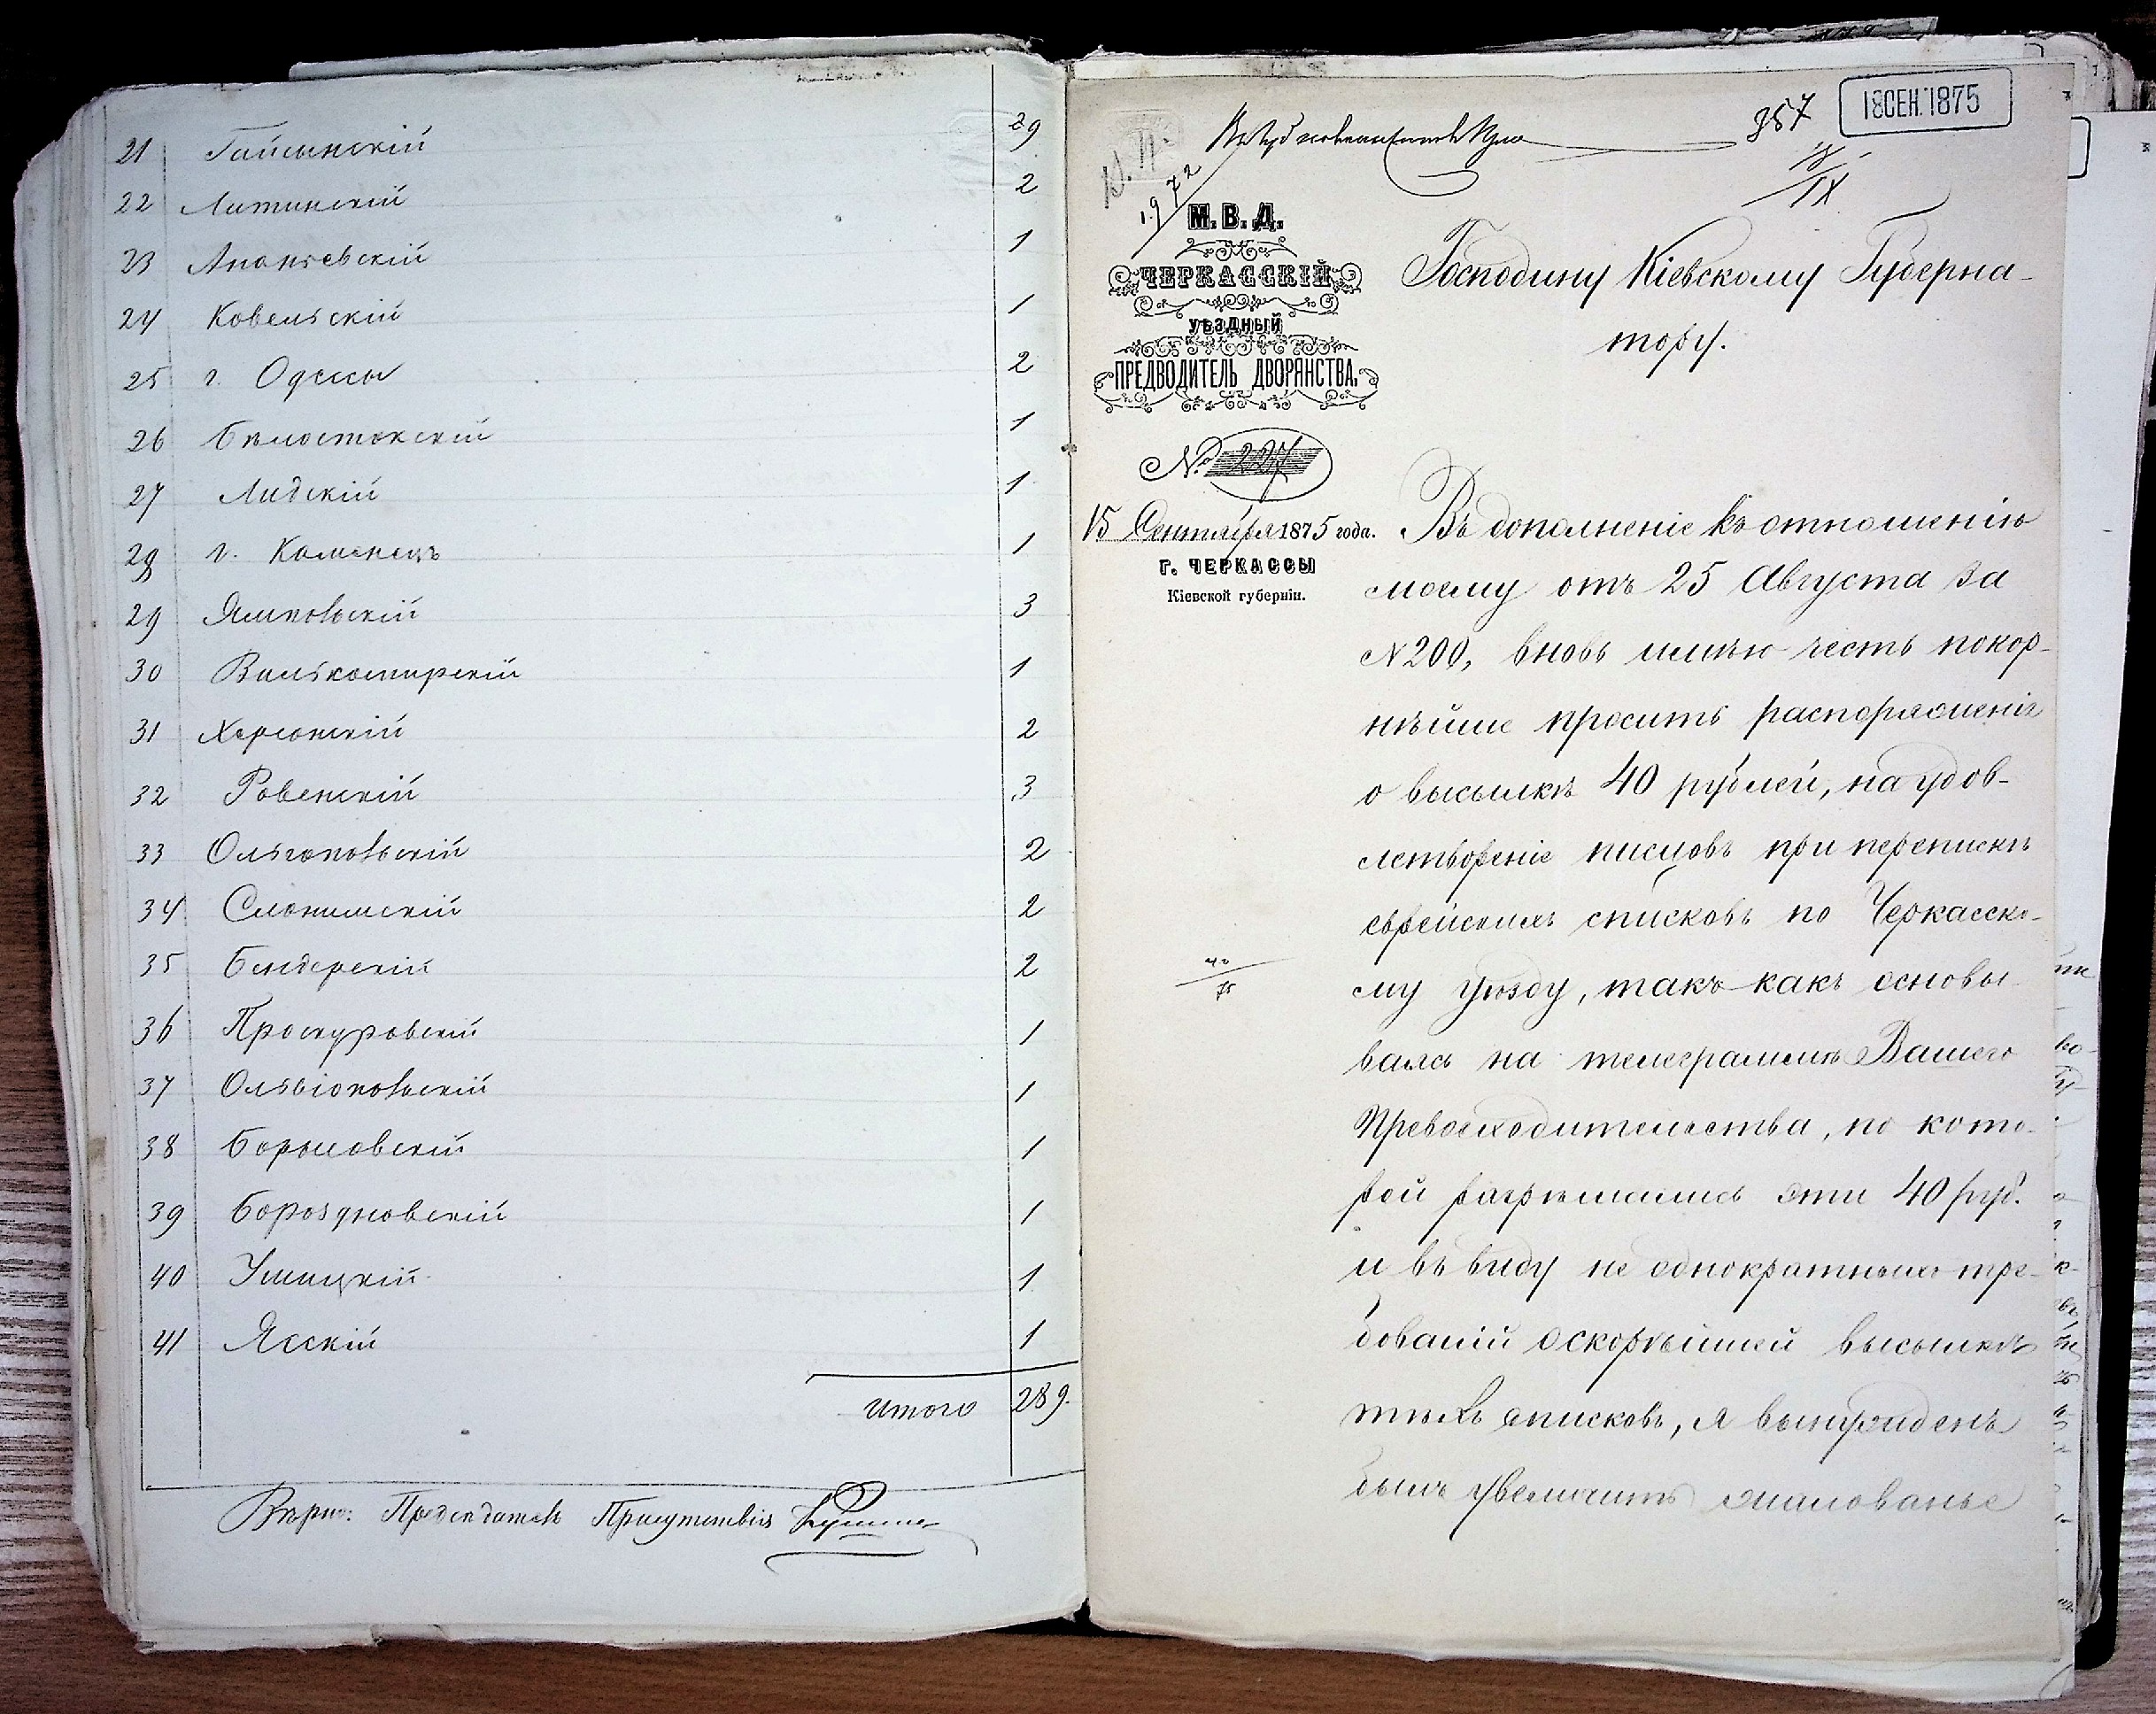 21 Гайсинскій 29
22 Литинскій 2
23 Ананьевскій 1
24 Ковельскій 1
25 г. Одессы 2
26 Бѣлостокскій 1
27 Лидскій 1
28 г. Каменецъ 1
29 Ямпольскій 3
30 Вилькомирскій 1
31 Херсонскій 2
32 Ровенскій 3
33 Ольгопольскій 2
34 Слонимскій 2
35 Бендерскій 2
36 Проскуровскій 1
37 Ольвіопольскій 1
38 Борисовскій 1
39 Бороздновскій 1
40 Ушицкій 1
41 Ясскій 1
Итого 289.
Вѣрно: Предсѣдатель Присутствія
357
18 СЕН. 1875
18/IX
1972
М. В. Д.
ЧЕРКАССКІЙ
УѢЗДНЫЙ
ПРЕДВОДИТЕЛЬ ДВОРЯНСТВА.
№ 227
15 Сентября 1875 года.
Г. ЧЕРКАССЫ
Кіевской губерніи.
Господину Кіевскому Губерна-
тору.
Въ дополненіе къ отношенію
моему отъ 25 Августа за
№ 200, вновь имѣю честь покор-
нѣйше просить распоряженія
о высылкѣ 40 рублей, на удов-
летвореніе писцовъ при перепискѣ
еврейскихъ списковъ по Черкасско-
му уѣзду, такъ какъ основы-
ваясь на телеграммѣ Вашего
Превосходительства, по кото-
рой разрѣшались эти 40 руб.
и въ виду не однократныхъ тре-
бованій о скорѣйшей высылкѣ
тѣхъ списковъ, я вынужденъ
былъ увеличить жалованье